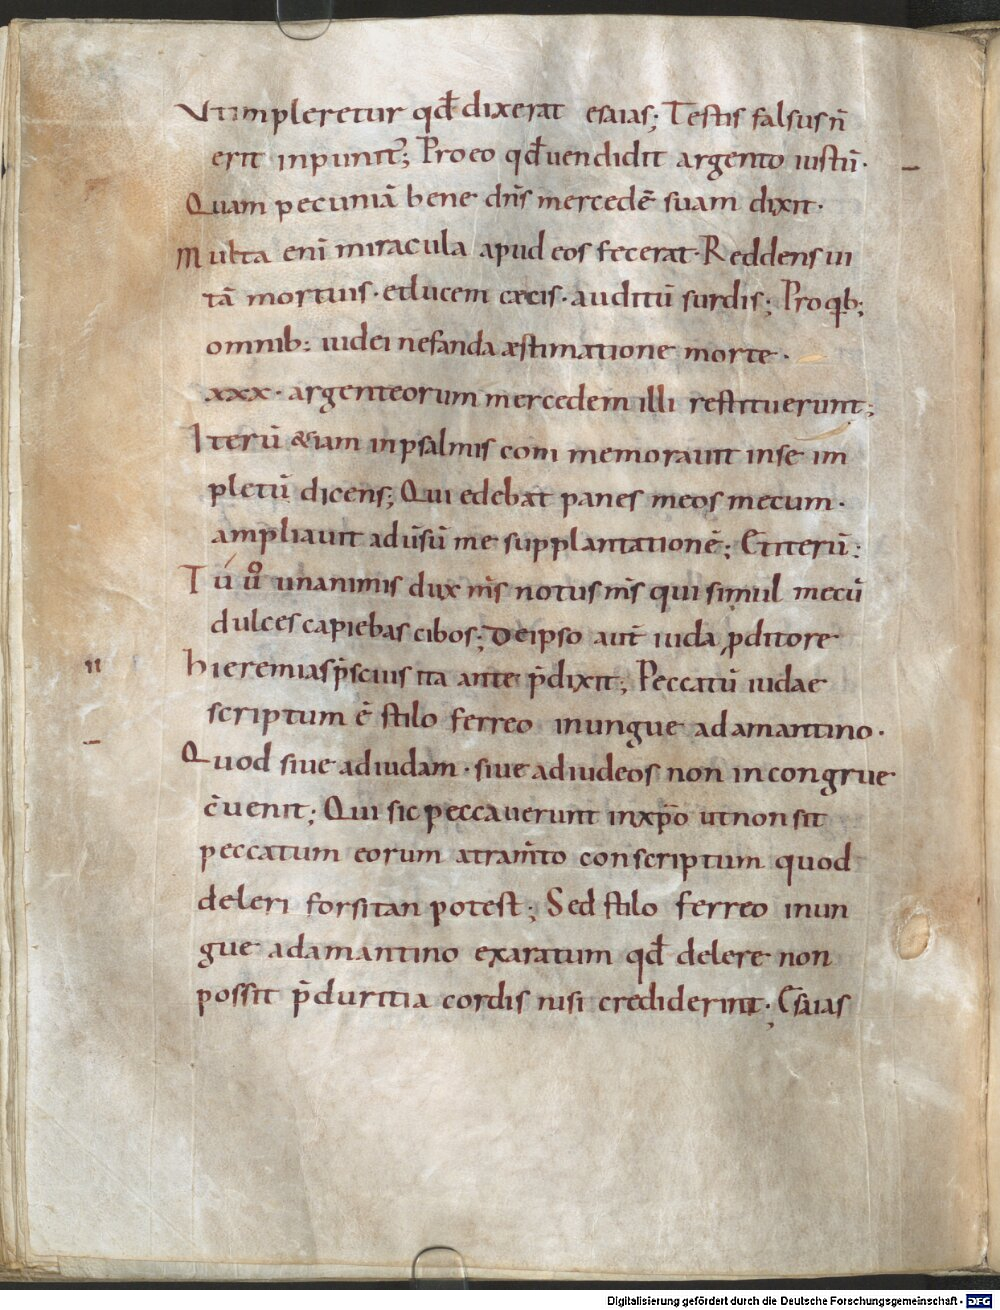 Vt impleretur qđ dixerat esaias; Testis falsus n̄
erit inpunit᷒; Pro eo qđ uendidit argento iustū·
Quam pecuniā bene dn̄s mercedē suam dixit·
Multa enī miracula apud eos fecerat· Reddens ui
tā mortuis· et lucem cæcis· auditū surdis; Pro qb;
omnib; iudei nefanda æstimatione morte·
xxx· argenteorum mercedem illi restituerunt;
Iterū &iam in psalmis com memorauit in se im
pletū dicens; Qui edebat panes meos mecum·
ampliauit adūsū me supplantationē; Et iterū;
Tú ů unanimis dux ms̄ notus ms̄ qui simul mecū
dulces capiebas cibos; De ipso aut̄ iuda ꝓditore
hieremias p̄scius ita ante p̄dixit; Peccatū iudae
scriptum ē stilo ferreo in ungue adamantino·
Quod siue ad iudam· siue ad iudeos non incongrue
c̄uenit; Qui sic peccauerunt in xp̄o ut non sit
peccatum eorum atram̄to conscriptum quod
deleri forsitan potest; Sed stilo ferreo in un
gue adamantino exaratum qđ delere non
possit p̄ duritia cordis nisi crediderint; Esaias
Digitalisierung gefördert durch die Deutsche Forschungsgemeinschaft - DFG